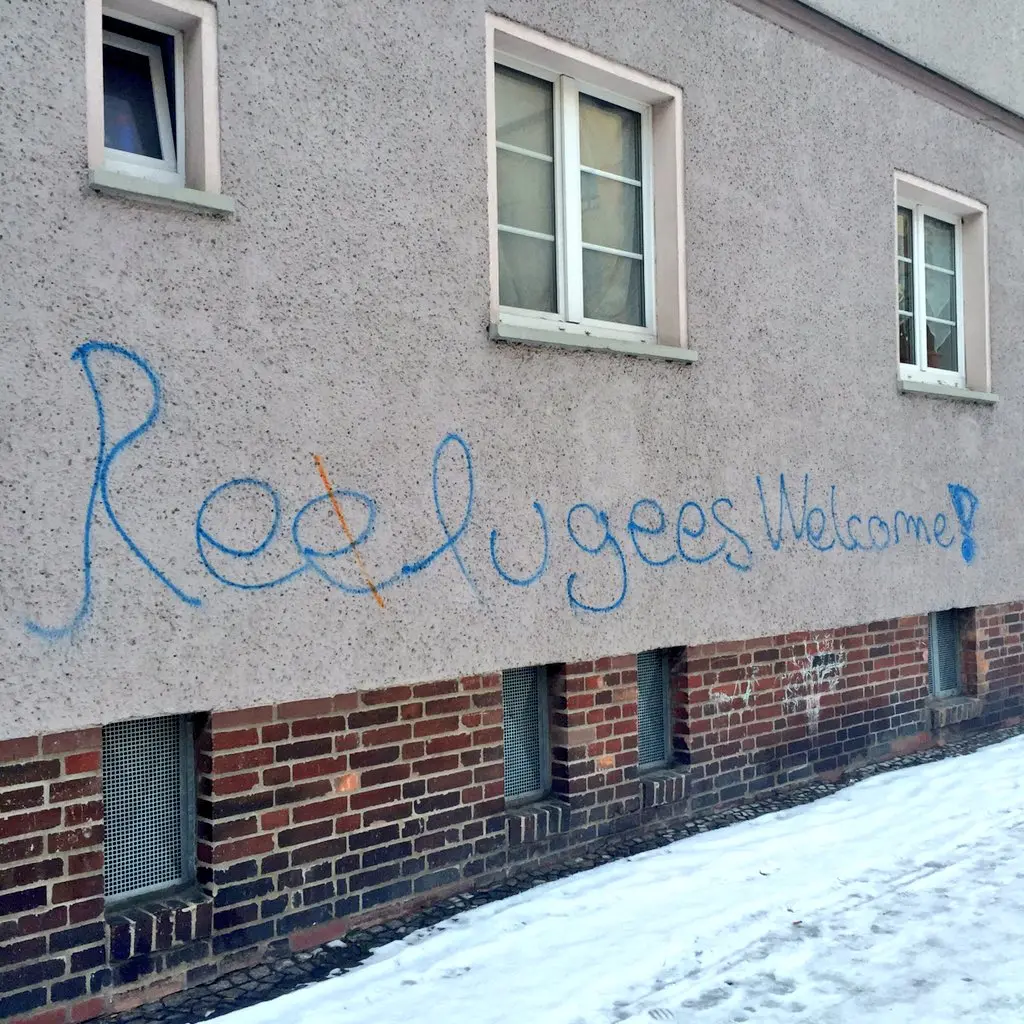 Reefugees Welcome!